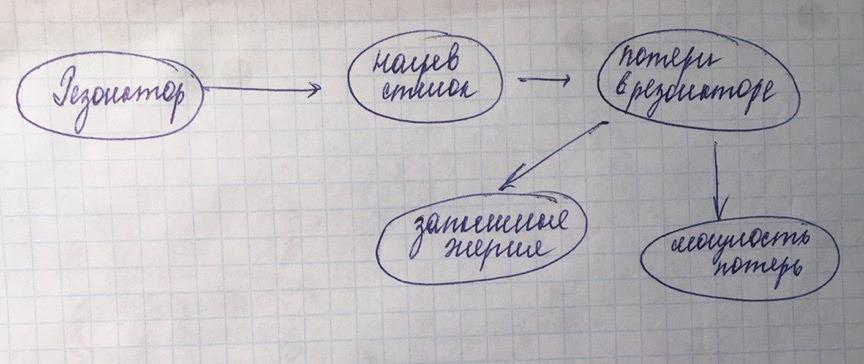 Резонатор
нагрев
стенок
потери
в резонаторе
запасенная
энергия
мощность
потерь